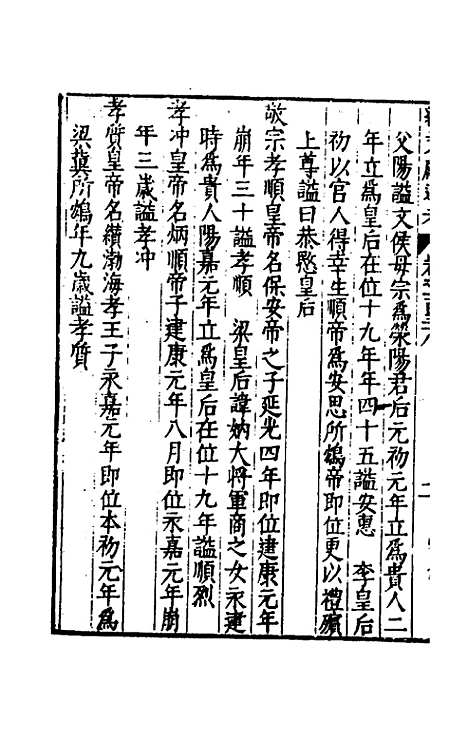 父陽謚文侯母宗爲滎陽君后元初元年立爲貴人二
年立爲皇后在位十九年年四十五謚安思　李皇后
初以官人得幸生順帝爲安思所鴆帝即位更以禮殯
上尊謚曰恭愍皇后
敬宗孝順皇帝名保安帝之子延光四年即位建康元年
崩年三十謚孝順　梁皇后諱妠大將軍商之女永建
時爲貴人陽嘉元年立爲皇后在位十九年謚順烈
孝冲皇帝名炳順帝子建康元年八月即位永嘉元年崩
年三歲謚孝冲
孝質皇帝名纘渤海孝王子永嘉元年即位本初元年爲
梁冀所鴆年九歲謚孝質